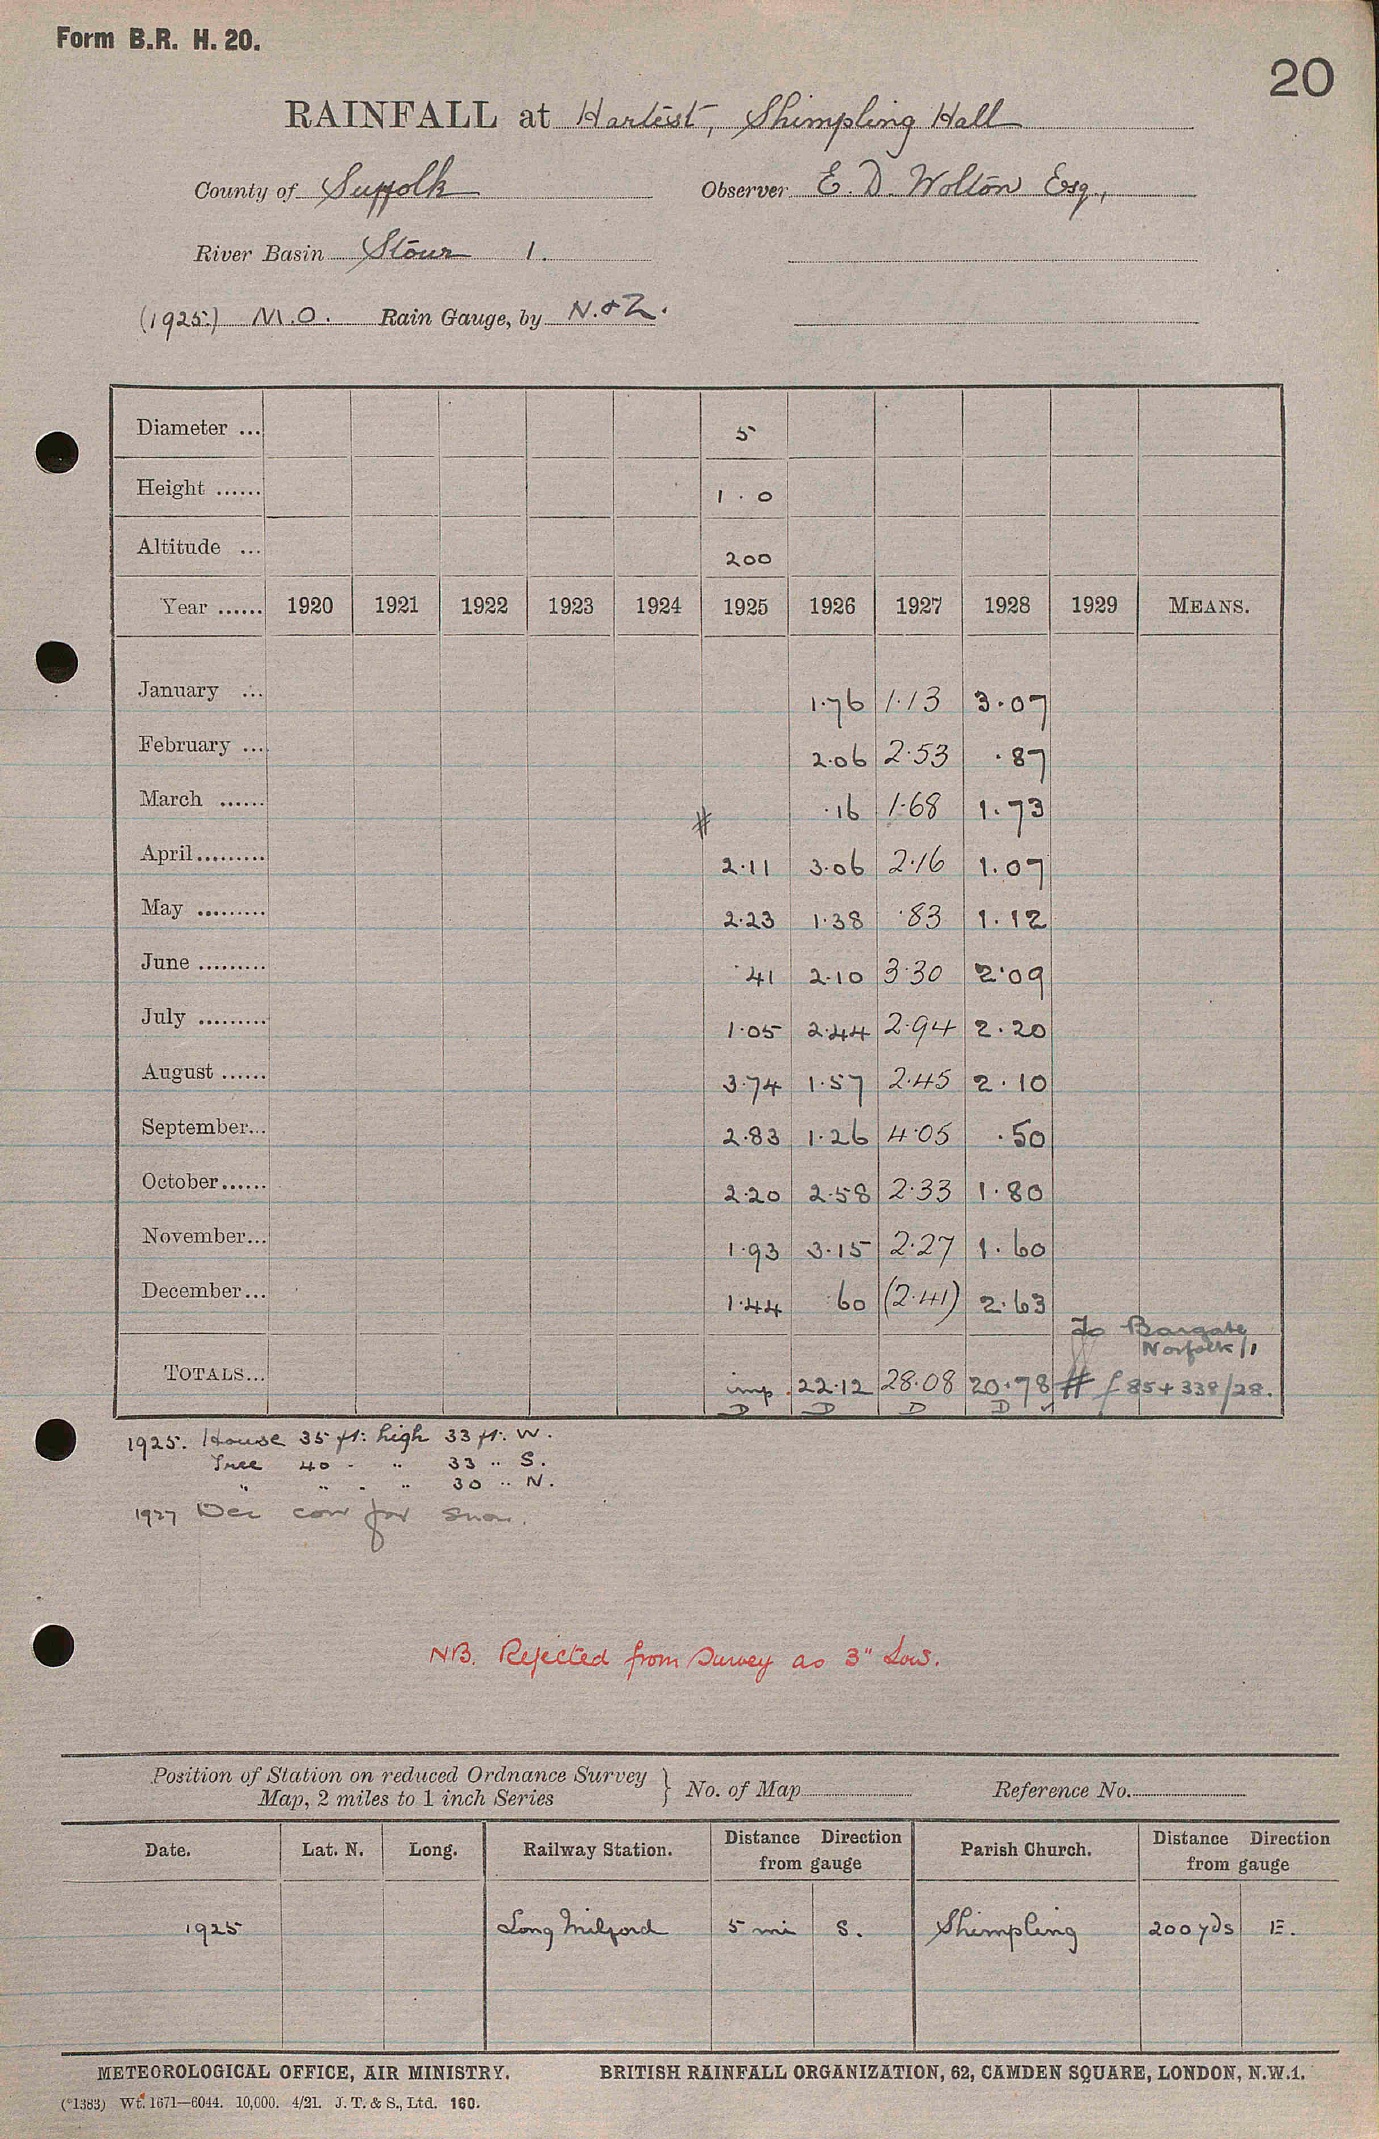 Form B.R. H. 20.
20
RAINFALL at Hartest, Shimpling Hall
County of Suffolk Observer E. D. Wolton Esq.,
River Basin Stour 1.
(1925) M.O. Rain Gauge, by N. & Z.
Diameter ... 5
Height ...... 1 . 0
Altitude ... 200
Year ...... 1920 1921 1922 1923 1924 1925 1926 1927 1928 1929 MEANS.
January ... 1.76 1.13 3.07
February ... 2.06 2.53 .87
March ...... # .16 1.68 1.73
April......... 2.11 3.06 2.16 1.07
May ......... 2.23 1.38 .83 1.12
June ......... .41 2.10 3.30 2.09
July ......... 1.05 2.44 2.94 2.20
August ...... 3.74 1.57 2.45 2.10
September... 2.83 1.26 4.05 .50
October...... 2.20 2.58 2.33 1.80
November... 1.93 3.15 2.27 1.60
December... 1.44 .60 (2.41) 2.63
To Bargate
Norfolk/1
TOTALS... imp. 22.12 28.08 20.78 # f 85+338/28.
D D D D ✓
1925. House 35 ft. high 33 ft. W.
Tree 40 - " 33 " S.
" " - " 30 " N.
1927 Dec corr for snow.
NB. Rejected from Survey as 3" Low.
Position of Station on reduced Ordnance Survey
Map, 2 miles to 1 inch Series } No. of Map Reference No.
Date. Lat. N. Long. Railway Station. Distance Direction from gauge Parish Church. Distance Direction from gauge
1925 Long Milford 5 mi S. Shimpling 200 yds E.
METEOROLOGICAL OFFICE, AIR MINISTRY. BRITISH RAINFALL ORGANIZATION, 62, CAMDEN SQUARE, LONDON, N.W.1.
(*1383) Wt. 1671—6044. 10,000. 4/21. J. T. & S., Ltd. 160.